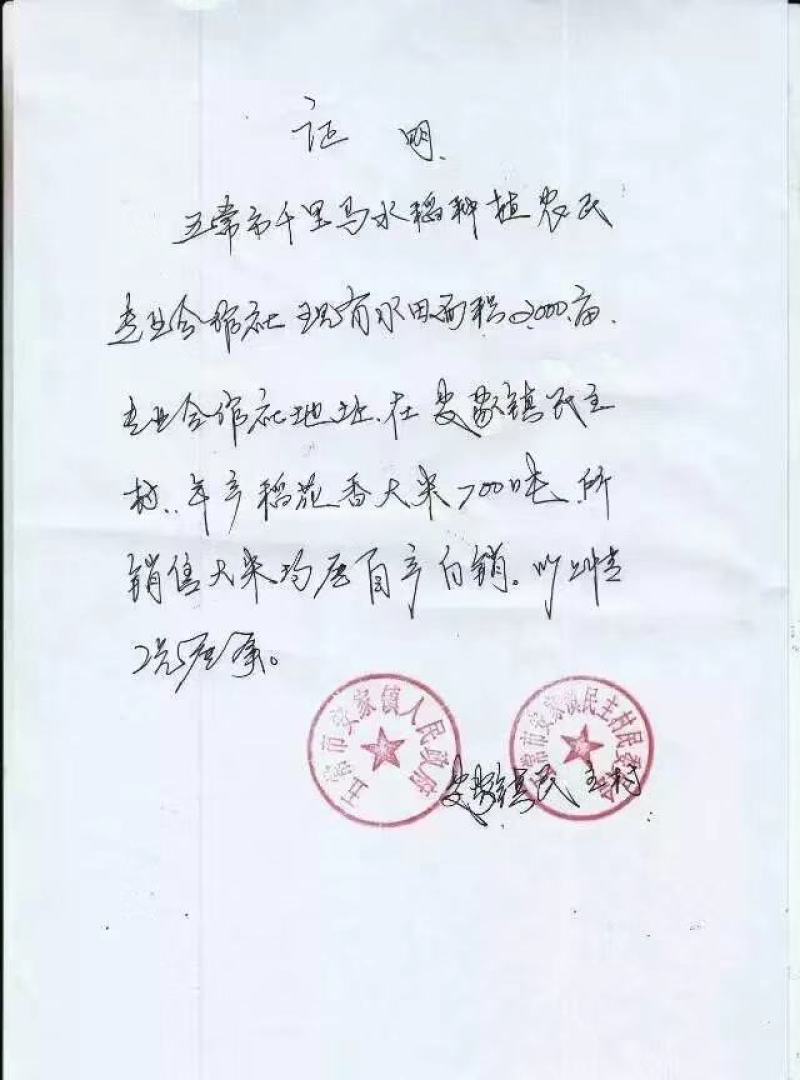 证明
五常市千里马水稻种植农民
专业合作社现有水田面积2000亩.
专业合作社地址.在安家镇民主
村.年产稻花香大米700吨.所
销售大米均属自产自销。以上情
况属实。
五常市安家镇人民政府
五常市安家镇民主村民委员会
安家镇民主村